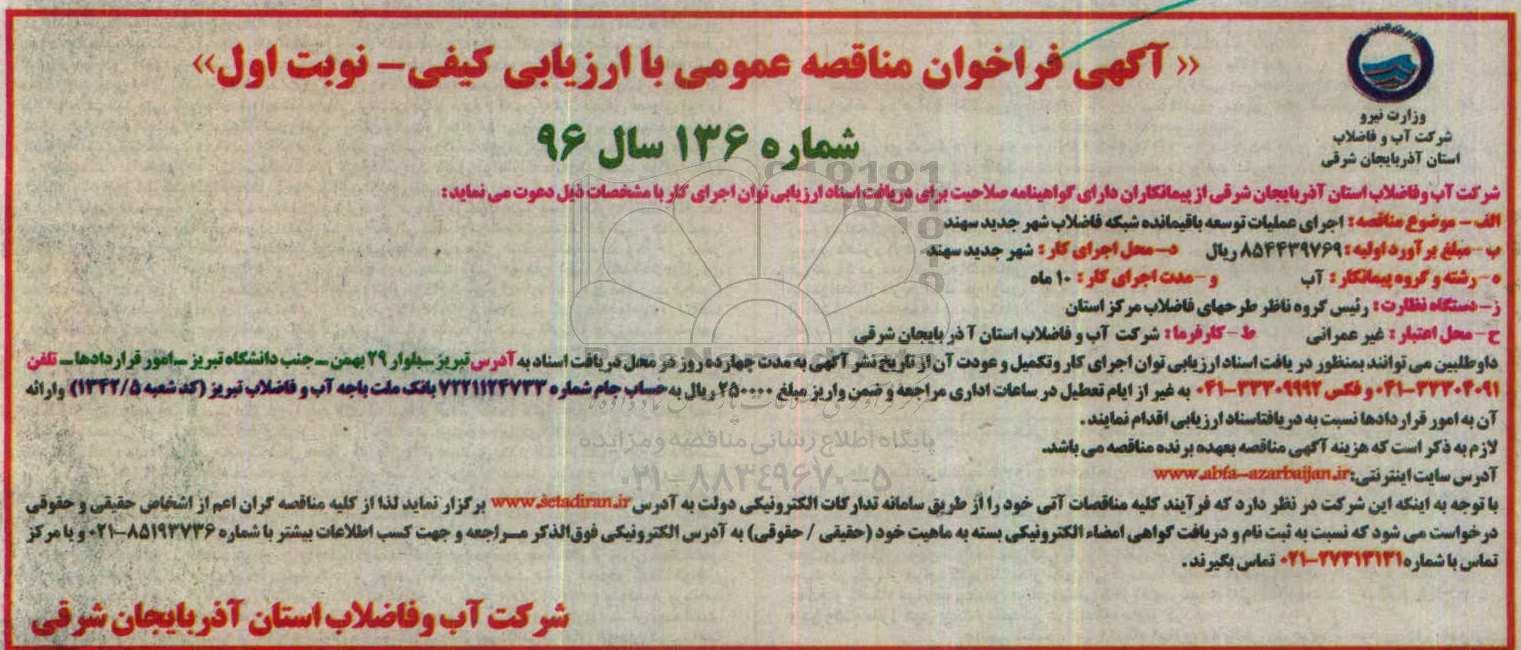 وزارت نیرو
شرکت آب و فاضلاب
استان آذربایجان شرقی
«آگهی فراخوان مناقصه عمومی با ارزیابی کیفی- نوبت اول»
شماره ۱۳۶ سال ۹۶
شرکت آب وفاضلاب استان آذربایجان شرقی از پیمانکاران دارای گواهینامه صلاحیت برای دریافت اسناد ارزیابی توان اجرای کار با مشخصات ذیل دعوت می نماید:
الف- موضوع مناقصه: اجرای عملیات توسعه باقیمانده شبکه فاضلاب شهر جدید سهند
ب-مبلغ برآورد اولیه: ۸۵۴۴۳۹۷۶۹ ریال د-محل اجرای کار: شهر جدید سهند
ه-رشته و گروه پیمانکار: آب و-مدت اجرای کار: ۱۰ ماه
ز-دستگاه نظارت: رئیس گروه ناظر طرحهای فاضلاب مرکز استان
ح-محل اعتبار: غیر عمرانی ط-کارفرما: شرکت آب و فاضلاب استان آذربایجان شرقی
داوطلبین می توانند بمنظور دریافت اسناد ارزیابی توان اجرای کار وتکمیل و عودت آن از تاریخ نشر آگهی به مدت چهارده روز در محل دریافت اسناد به آدرس تبریز-بلوار ۲۹ بهمن-جنب دانشگاه تبریز-امور قراردادها- تلفن
۰۴۱-۳۳۳۰۴۰۹۱ و فکس ۰۴۱-۳۳۳۰۹۹۹۲ به غیر از ایام تعطیل در ساعات اداری مراجعه و ضمن واریز مبلغ ۲۵۰۰۰۰ ریال به حساب جام شماره ۷۲۲۱۱۲۴۷۳۳ بانک ملت باجه آب و فاضلاب تبریز (کد شعبه ۱۳۴۲/۵) وارائه
آن به امور قراردادها نسبت به دریافتاسناد ارزیابی اقدام نمایند.
لازم به ذکر است که هزینه آگهی مناقصه بعهده برنده مناقصه می باشد.
آدرس سایت اینترنتی: www.abfa-azarbaijan.ir
با توجه به اینکه این شرکت در نظر دارد که فرآیند کلیه مناقصات آتی خود را از طریق سامانه تدارکات الکترونیکی دولت به آدرس www.setadiran.ir برگزار نماید لذا از کلیه مناقصه گران اعم از اشخاص حقیقی و حقوقی
درخواست می شود که نسبت به ثبت نام و دریافت گواهی امضاء الکترونیکی بسته به ماهیت خود (حقیقی / حقوقی) به آدرس الکترونیکی فوق‌الذکر مراجعه و جهت کسب اطلاعات بیشتر با شماره ۰۲۱-۸۵۱۹۳۷۳۶ و یا مرکز
تماس با شماره ۰۲۱-۲۷۳۱۳۱۳۱ تماس بگیرند.
پایگاه اطلاع رسانی مناقصه و مزایده
۰۲۱-۸۸۳۴۹۶۷۰-۵
شرکت آب وفاضلاب استان آذربایجان شرقی